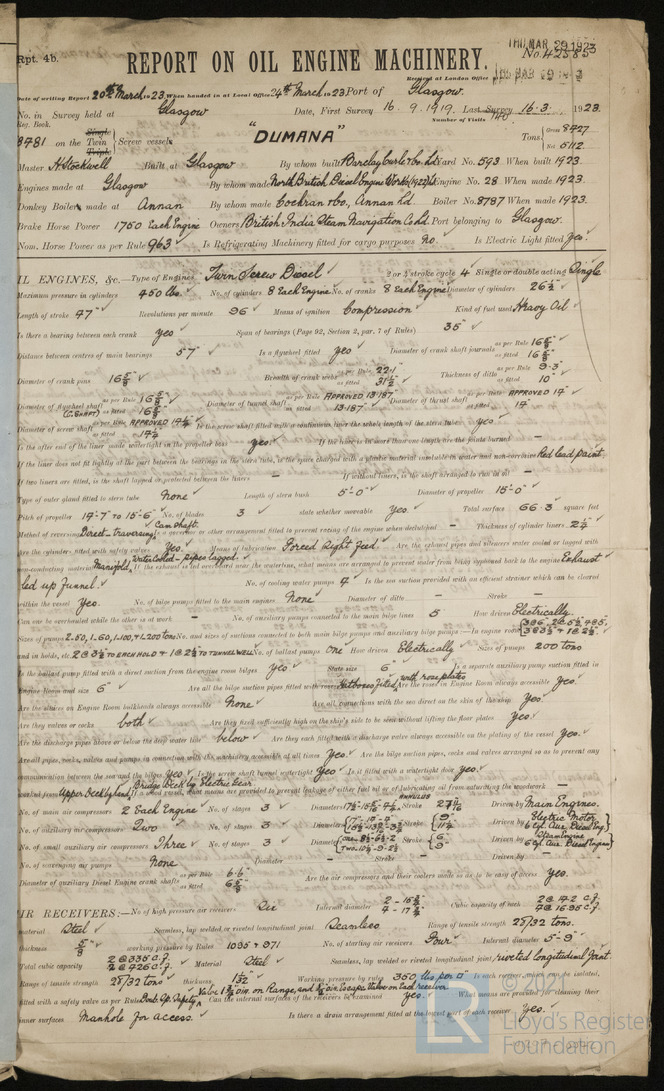 Rpt. 4b.
THU. MAR 29 1923
REPORT ON OIL ENGINE MACHINERY.
No. 42585
Received at London Office
Date of writing Report 20th March 1923. When handed in at Local Office 24th March 1923 Port of Glasgow.
No. in Survey held at Glasgow Date, First Survey 16. 9. 1919. Last Survey 16.3. 1923.
Reg. Book. Number of Visits 140
8781 on the Single Twin Triple Screw vessels "DUMANA" Tons Gross 8427 Net 5112
Master H Stockwell Built at Glasgow By whom built Barclay Curle & Co. Ld Yard No. 593 When built 1923.
Engines made at Glasgow By whom made North British Diesel Engine Works (1922) Ld Engine No. 28 When made 1923.
Donkey Boilers made at Annan By whom made Cochran & Co., Annan Ld. Boiler No. 8787 When made 1923.
Brake Horse Power 1750 Each Engine Owners British India Steam Navigation Co Ld Port belonging to Glasgow.
Nom. Horse Power as per Rule 963 Is Refrigerating Machinery fitted for cargo purposes No. Is Electric Light fitted Yes.
IL ENGINES, &c.—Type of Engines Twin Screw Diesel 2 or 4 stroke cycle 4 Single or double acting Single
Maximum pressure in cylinders 450 lbs No. of cylinders 8 Each Engine No. of cranks 8 Each Engine Diameter of cylinders 26½"
Length of stroke 47" Revolutions per minute 96 Means of ignition Compression Kind of fuel used Heavy Oil
Is there a bearing between each crank Yes Span of bearings (Page 92, Section 2, par. 7 of Rules) 35"
Distance between centres of main bearings 57" Is a flywheel fitted Yes Diameter of crank shaft journals as per Rule 16⅝" as fitted 16⅝"
Diameter of crank pins 16⅝" Breadth of crank webs as per Rule 22.1 as fitted 31½" Thickness of ditto as per Rule 9.3 as fitted 10"
Diameter of flywheel shaft (C. SHAFT) as per Rule 16⅝" as fitted 16⅝" Diameter of tunnel shaft as per Rule APPROVED 13.187 as fitted 13.187" Diameter of thrust shaft as per Rule APPROVED 14" as fitted 14"
Diameter of screw shaft as per Rule APPROVED 14½" as fitted 14½" Is the screw shaft fitted with a continuous liner the whole length of the stern tube Yes.
Is the after end of the liner made watertight in the propeller boss yes. If the liner is in more than one length are the joints burned —
If the liner does not fit tightly at the part between the bearings in the stern tube, is the space charged with a plastic material insoluble in water and non-corrosive Red lead paint.
If two liners are fitted, is the shaft lapped or protected between the liners — If without liners, is the shaft arranged to run in oil —
Type of outer gland fitted to stern tube None Length of stern bush 5'-0" Diameter of propeller 15'-0"
Pitch of propeller 14'-7" to 15'-6" No. of blades 3 state whether moveable Yes. Total surface 66.3 square feet
Method of reversing Direct-traversing Cam shaft. Is a governor or other arrangement fitted to prevent racing of the engine when declutched — Thickness of cylinder liners 2½"
Are the cylinders fitted with safety valves Yes. Means of lubrication Forced Sight feed. Are the exhaust pipes and silencers water cooled or lagged with
non-conducting material Manifold, water cooled - pipes lagged. If the exhaust is led overboard near the waterline, what means are arranged to prevent water from being syphoned back to the engine Exhaust
led up funnel. No. of cooling water pumps 4 Is the sea suction provided with an efficient strainer which can be cleared
within the vessel Yes. No. of bilge pumps fitted to the main engines None Diameter of ditto — Stroke —
Can one be overhauled while the other is at work — No. of auxiliary pumps connected to the main bilge lines 5 How driven Electrically.
Sizes of pumps 2.50, 1.60, 1.100, & 1.200 tons No. and sizes of suctions connected to both main bilge pumps and auxiliary bilge pumps—In engine room
and in holds, etc. 2 @ 3½" TO EACH HOLD & 1 @ 2½" TO TUNNEL WELL No. of ballast pumps One How driven Electrically Sizes of pumps 200 tons
Is the ballast pump fitted with a direct suction from the engine room bilges Yes. State size 6" Is a separate auxiliary pump suction fitted in
Engine Room and size 6" Are all the bilge suction pipes fitted with roses Mud boxes fitted with rose plates Are the roses in Engine Room always accessible Yes.
Are the sluices on Engine Room bulkheads always accessible None Are all connections with the sea direct on the skin of the ship Yes.
Are they valves or cocks both Are they fixed sufficiently high on the ship's side to be seen without lifting the floor plates Yes.
Are the discharge pipes above or below the deep water line below Are they each fitted with a discharge valve always accessible on the plating of the vessel Yes.
Are all pipes, cocks, valves and pumps in connection with the machinery accessible at all times Yes. Are the bilge suction pipes, cocks and valves arranged so as to prevent any
communication between the sea and the bilges Yes. Is the screw shaft tunnel watertight Yes Is it fitted with a watertight door Yes.
worked from Upper Deck by hand, Bridge Deck by Electric Gear If a wood vessel, what means are provided to prevent leakage of either fuel oil or of lubricating oil from saturating the woodwork —
No. of main air compressors 2 Each Engine No. of stages 3 Diameters Stroke Driven by Main Engines.
No. of auxiliary air compressors Two No. of stages 3 Diameters Stroke Driven by Electric Motor
No. of small auxiliary air compressors Three No. of stages 3 Diameters Stroke Driven by
No. of scavenging air pumps None Diameter — Stroke — Driven by —
Diameter of auxiliary Diesel Engine crank shafts as per Rule 6.6 as fitted Are the air compressors and their coolers made so as to be easy of access Yes.
IR RECEIVERS:—No. of high pressure air receivers Six Internal diameter Cubic capacity of each
material Steel Seamless, lap welded or riveted longitudinal joint Seamless Range of tensile strength 28/32 tons.
thickness ⅝" working pressure by Rules 1095 & 971 No. of starting air receivers Four Internal diameter 5'-9"
Total cubic capacity 2 @ 335 c.f. 2 @ 426 c.f. Material Steel Seamless, lap welded or riveted longitudinal joint riveted longitudinal joint
Range of tensile strength 28/32 tons thickness 1 1/32" Working pressure by rules 350 lbs per □" Is each receiver, which can be isolated,
fitted with a safety valve as per Rule Can the internal surfaces of the receivers be examined Yes. What means are provided for cleaning their
inner surfaces Manhole for access. Is there a drain arrangement fitted at the lowest part of each receiver Yes.
© 2021
Lloyd's Register
Foundation